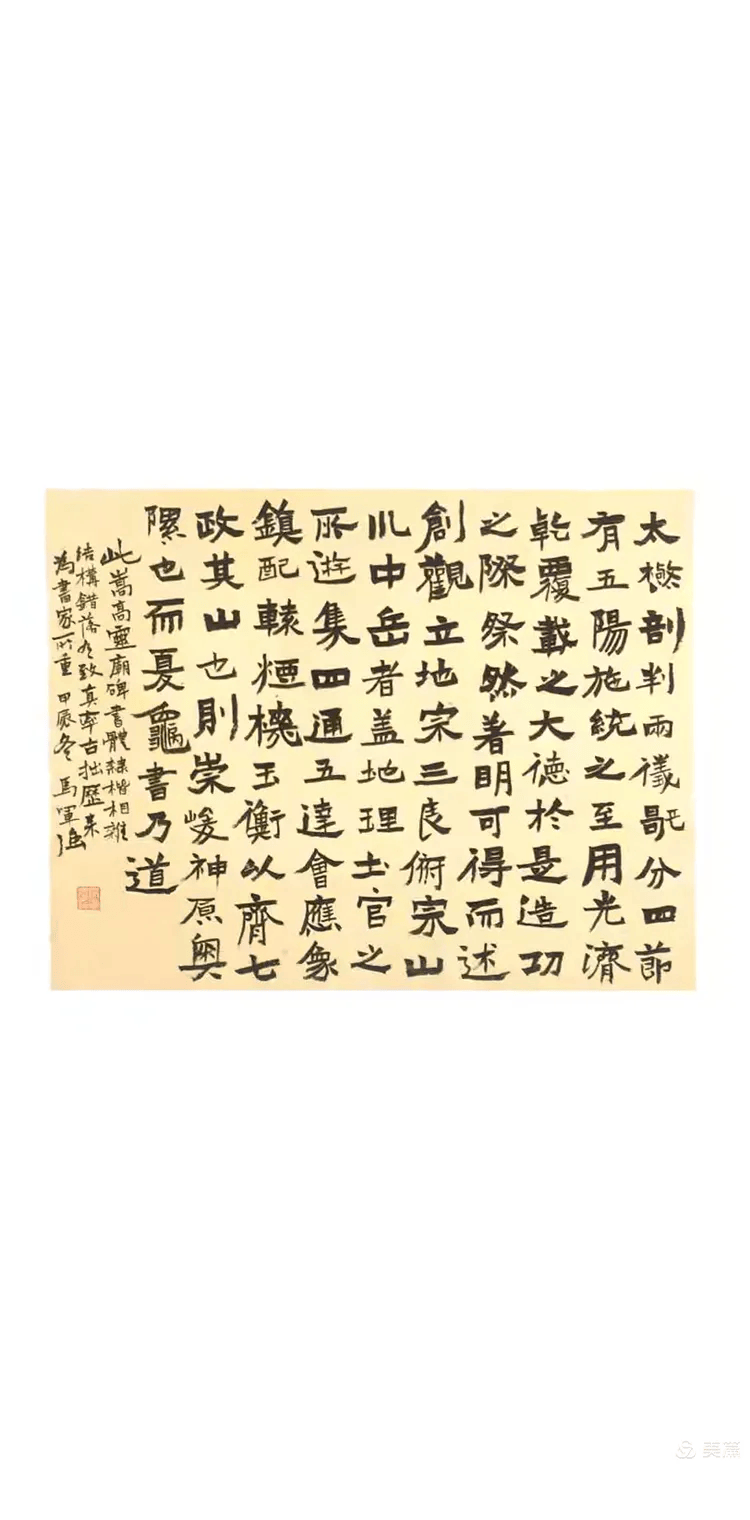 太極剖判兩儀既分四節
有五陽施統之至用光濟
乾覆載之大德於是造功
之際粲然著明可得而述
創觀立地宗三良俯宗山
川中岳者蓋地理土官之
所遊集四通五達會應象
鎮配轅煙機玉衡以齊七
政其山也則崇峻神原奧
隟也而夏龜書乃道
此嵩高靈廟碑書體隸楷相雜
結構錯落有致真率古拙歷來
為書家所重 甲辰冬 馬軍強
美篇